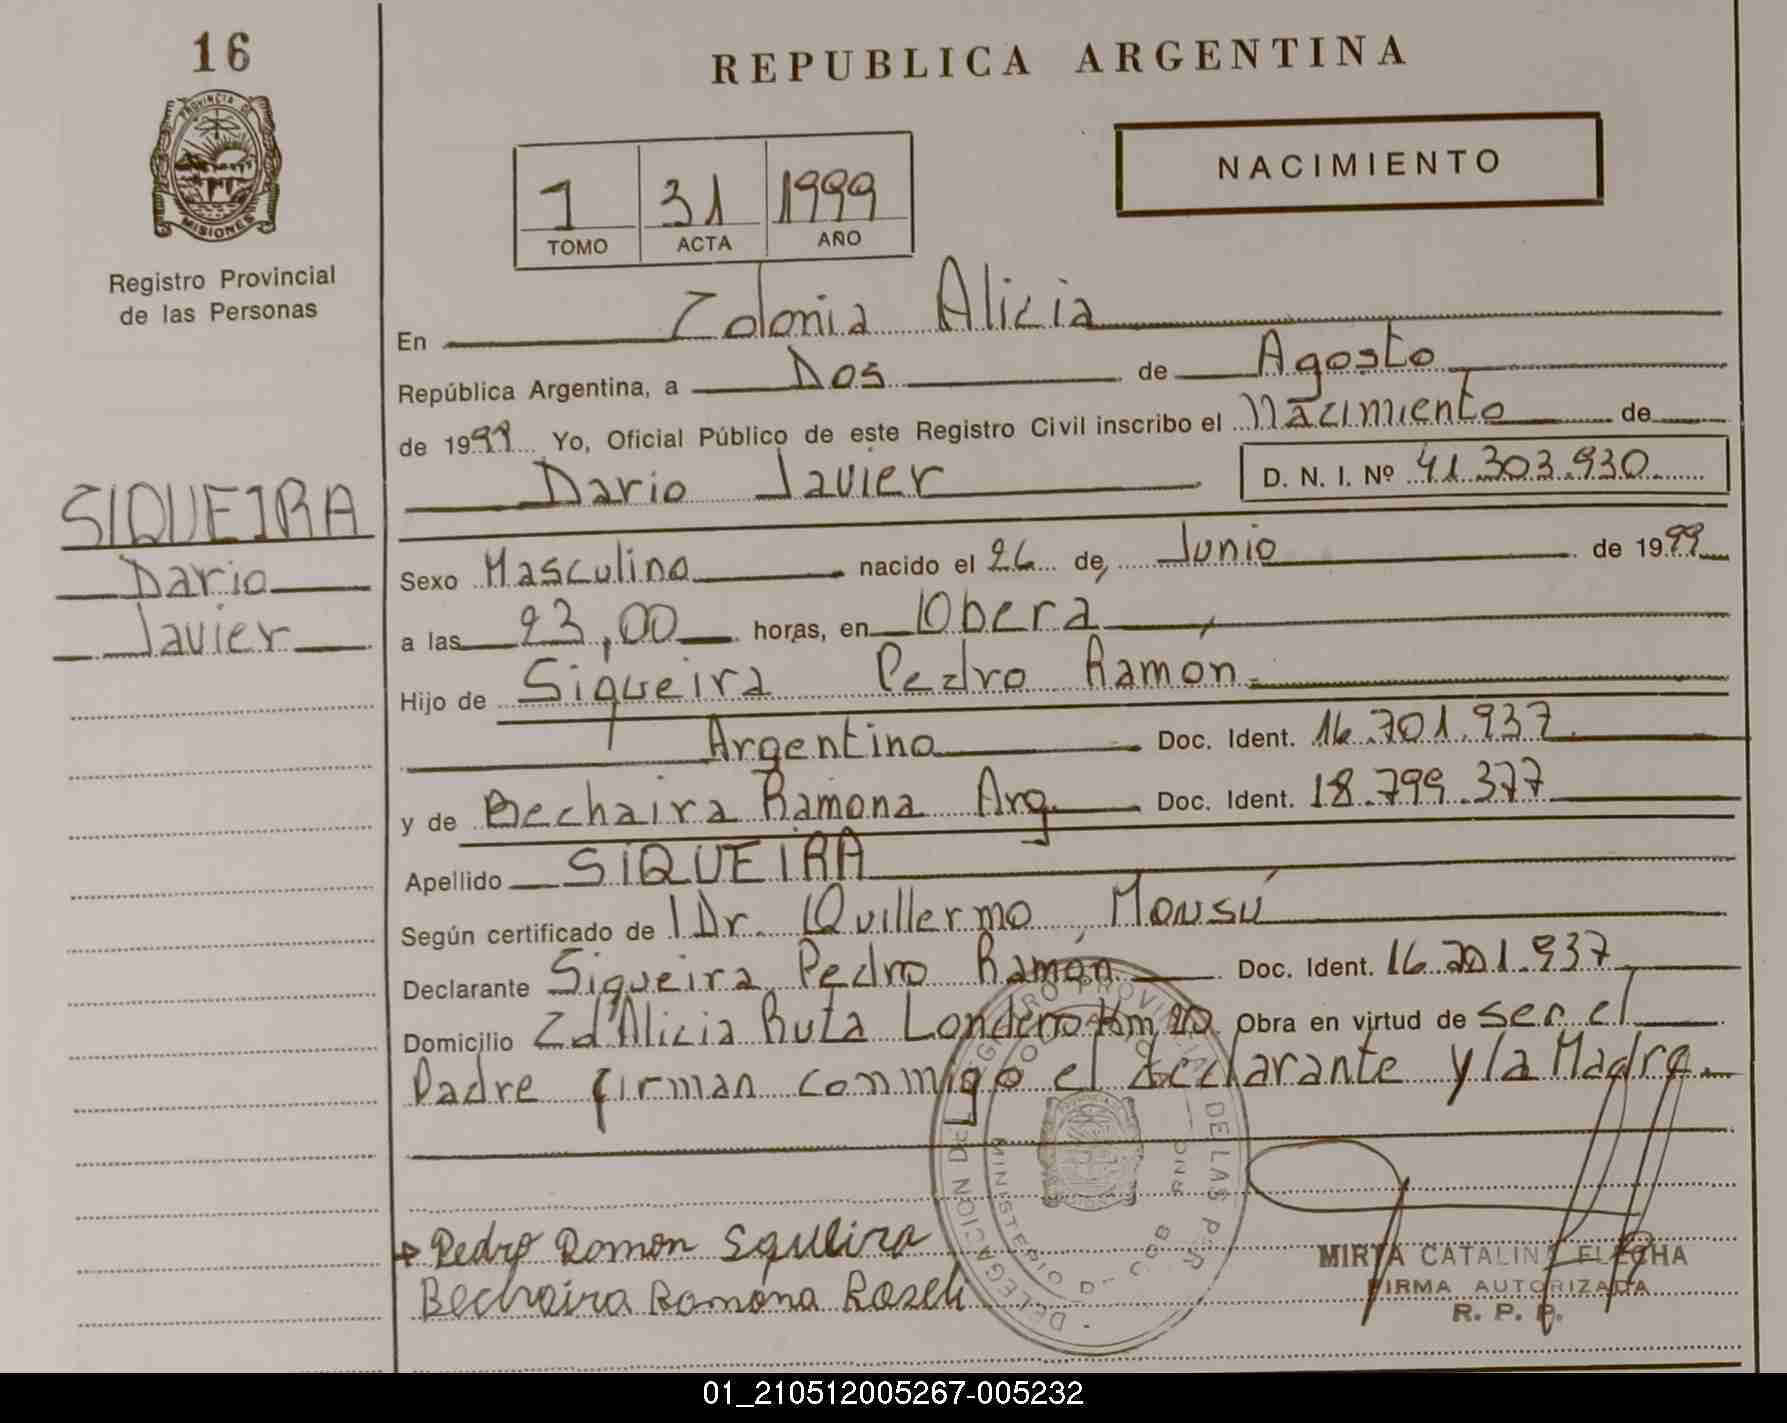 16
PROVINCIA DE
MISIONES
Registro Provincial
de las Personas
SIQUEIRA
Dario
Javier
REPUBLICA ARGENTINA
NACIMIENTO
1 31 1999
TOMO ACTA AÑO
En Colonia Alicia
República Argentina, a Dos de Agosto
de 1999 Yo, Oficial Público de este Registro Civil inscribo el Nacimiento de
Dario Javier D. N. I. Nº 41.303.930
Sexo Masculino nacido el 26 de Junio de 1999
a las 23,00 horas, en Obera
Hijo de Siqueira Pedro Ramon
Argentino Doc. Ident. 16.701.937
y de Bechaira Ramona Arg. Doc. Ident. 18.799.377
Apellido SIQUEIRA
Según certificado de Dr. Guillermo Monsú
Declarante Siqueira Pedro Ramón Doc. Ident. 16.701.937
Domicilio Cd Alicia Ruta Londero Km 20 Obra en virtud de ser el
Padre firman conmigo el declarante y la Madre.
Pedro Ramon Squeira
Bechaira Ramona Roseli
MIRTA CATALINA FLECHA
FIRMA AUTORIZADA
R. P. P.
01_210512005267-005232